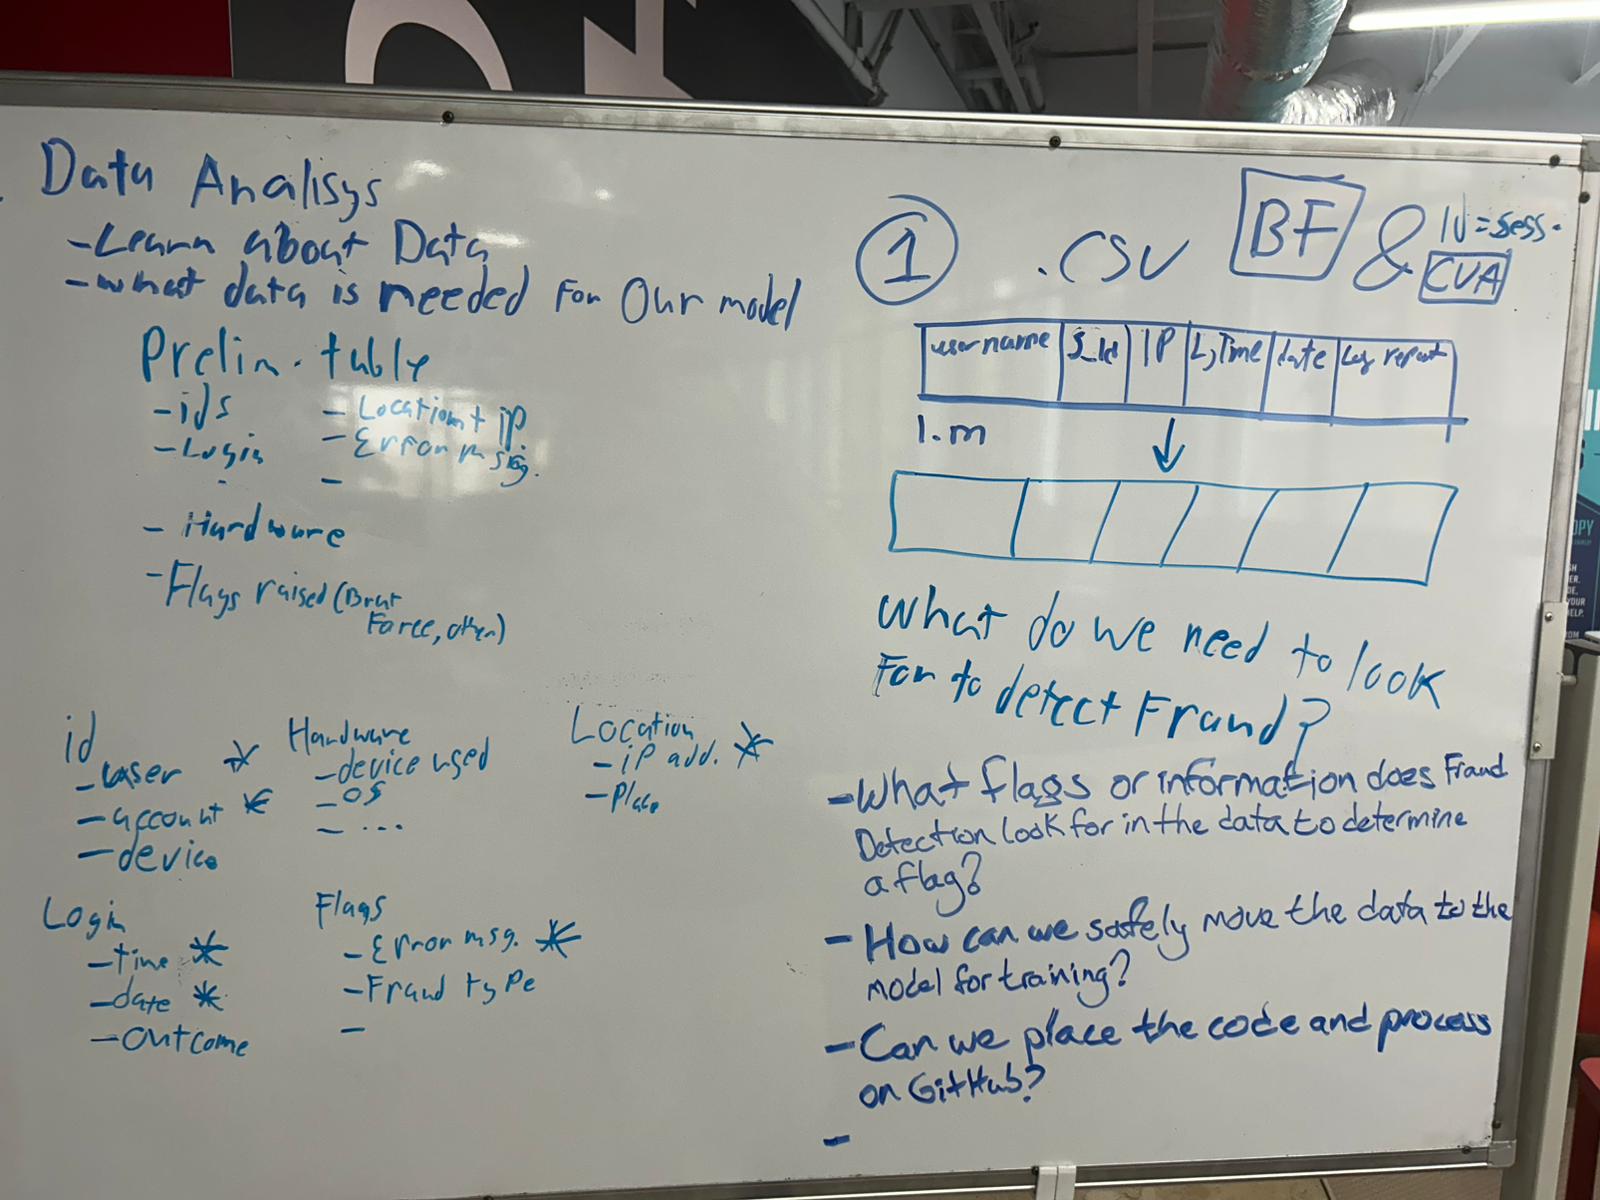 Data Analisys
- Learn about Data
- what data is needed For Our model
Prelin. table
- ids
- Login
- Location + iP.
- Error msg.
-
- Hardware
- Flags raised (Brut
Force, other)
id
- user *
- account *
- device
Hardware
- device used
- OS
- ...
Location
- iP add. *
- Place
Login
- time *
- date *
- outcome
Flags
- Error msg. *
- Fraud type
-
1 .CSV BF & ID = sess.
CVA
username S_Id IP L,Time date Log report
1.m
What do we need to look
For to detect Fraud?
- What flags or information does Fraud
Detection look for in the data to determine
a flag?
- How can we safely move the data to the
model for training?
- Can we place the code and process
on GitHub?
-
OPY
YOUR
HELP.